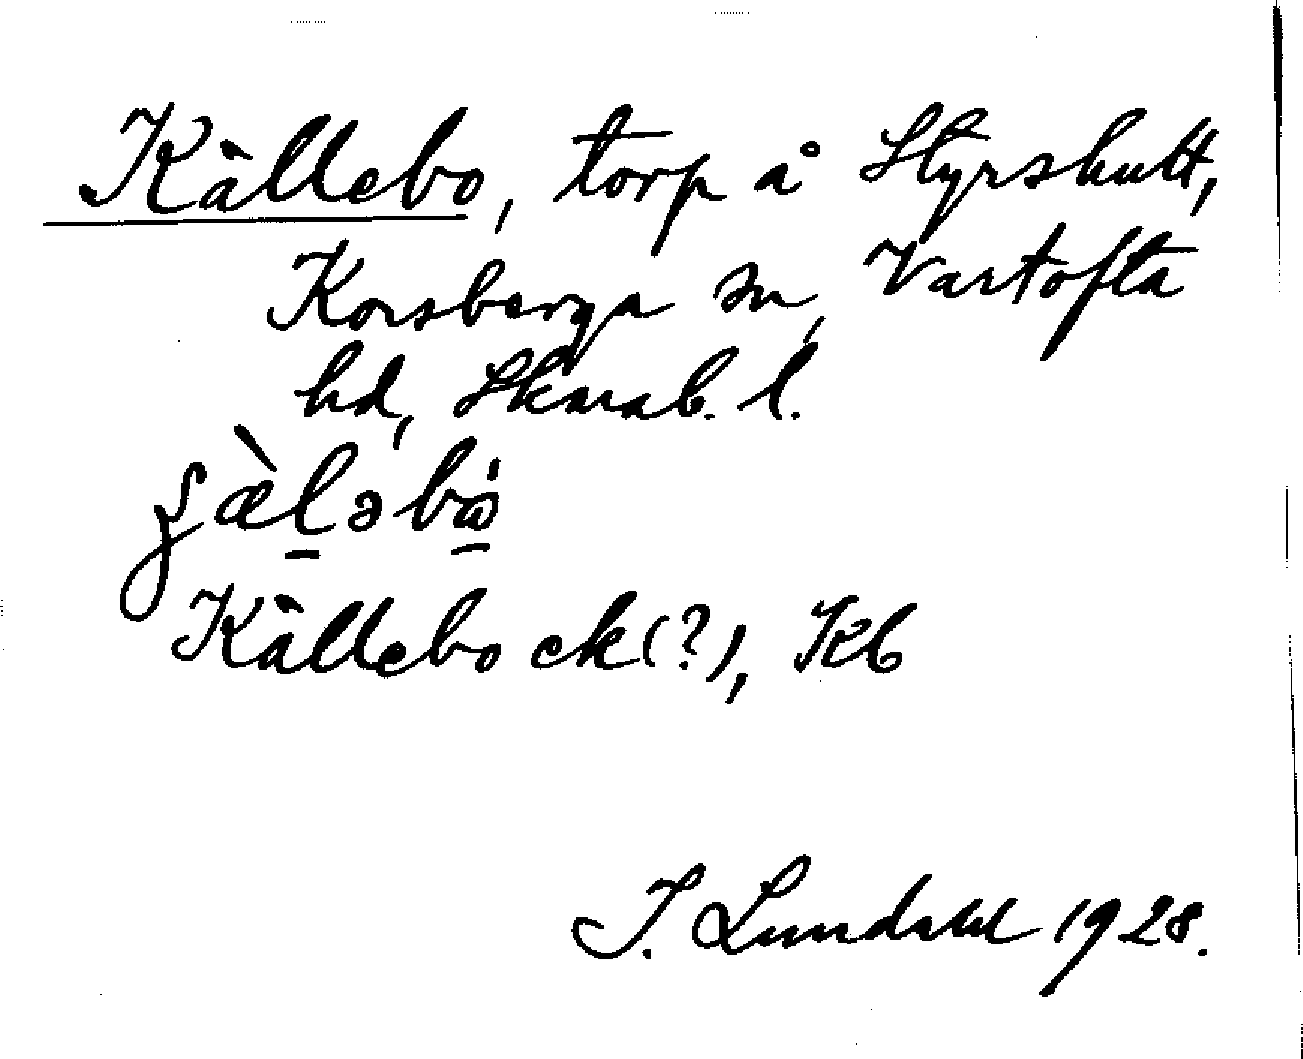 Källebo, torp å Styrshult,
Korsberga sn, Vartofta
hd, Skarab. l.
Källebo ck(?), Kb
I. Lundahl 1928.